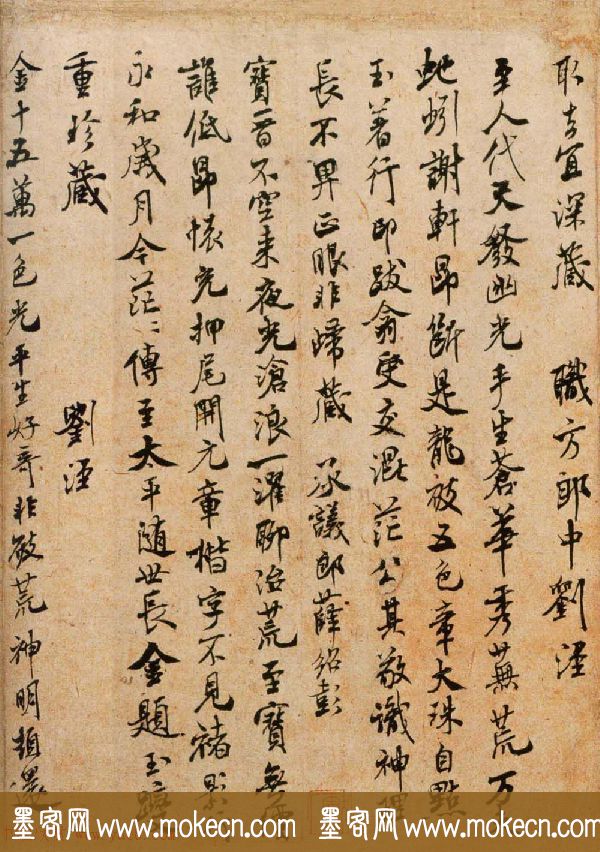 耶告宜深藏 職方郎中劉涇
至人代天發幽光手生蒼華秀蕪荒万
蚍蚓謝軒昂斷是龍被五色章大珠自點
玉著行即跋翁受交混茫公其敬識神理
長不畀正眼非歸藏 承議郎薛紹彭
寶晉不空来夜光滄浪一濯聊治荒至寶無
誰低昂懷充押尾開元章楷字不見褚
永和歲月今茫〻傳至太平随世長金題玉
重珍藏 劉涇
金十五萬一色光平生好奇非破荒神明頓還
墨客网 www.mokecn.com 墨客网 www.mokecn.com